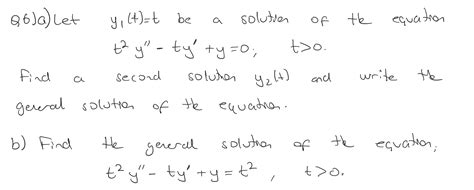 Q6)a) Let y₁(t)=t be a solution of the equation
t² y'' - ty' + y = 0, t>0.
Find a second solution y₂(t) and write the
general solution of the equation.
b) Find the general solution of the equation,
t² y'' - ty' + y = t² , t>0.